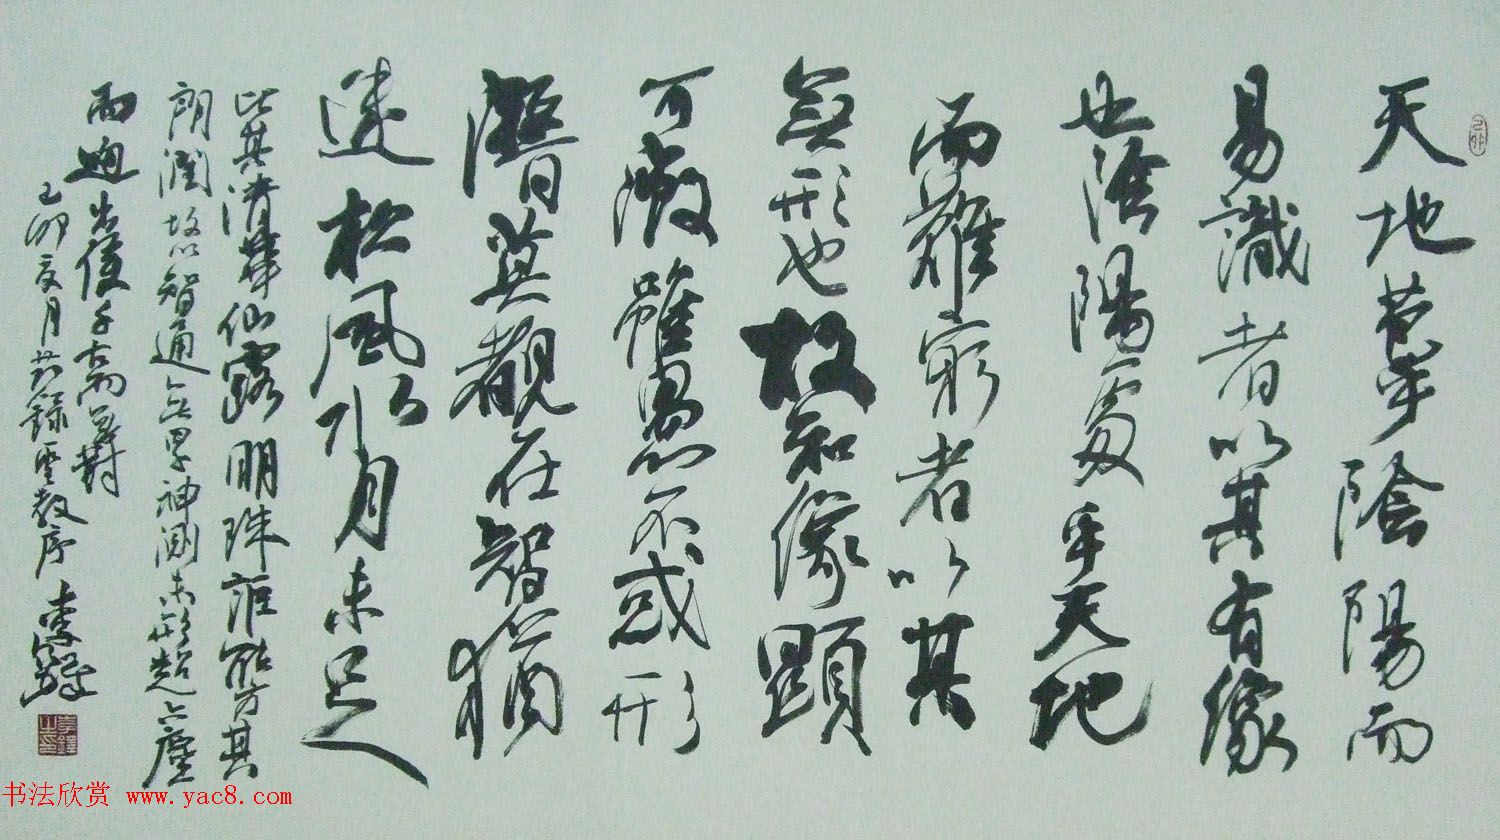 天地苞乎陰陽而
易識者以其有像
也陰陽處乎天地
而難窮者以其
無形也故知像顯
可徵雖愚不惑形
潛莫覩在智猶
迷松風水月未足
比其清華仙露明珠詎能方其
朗潤故以智通無累神測未形超六塵
而迥出隻千古而無對
己卯夏月節錄聖教序 李鐸
李鐸之印
书法欣赏 www.yac8.com